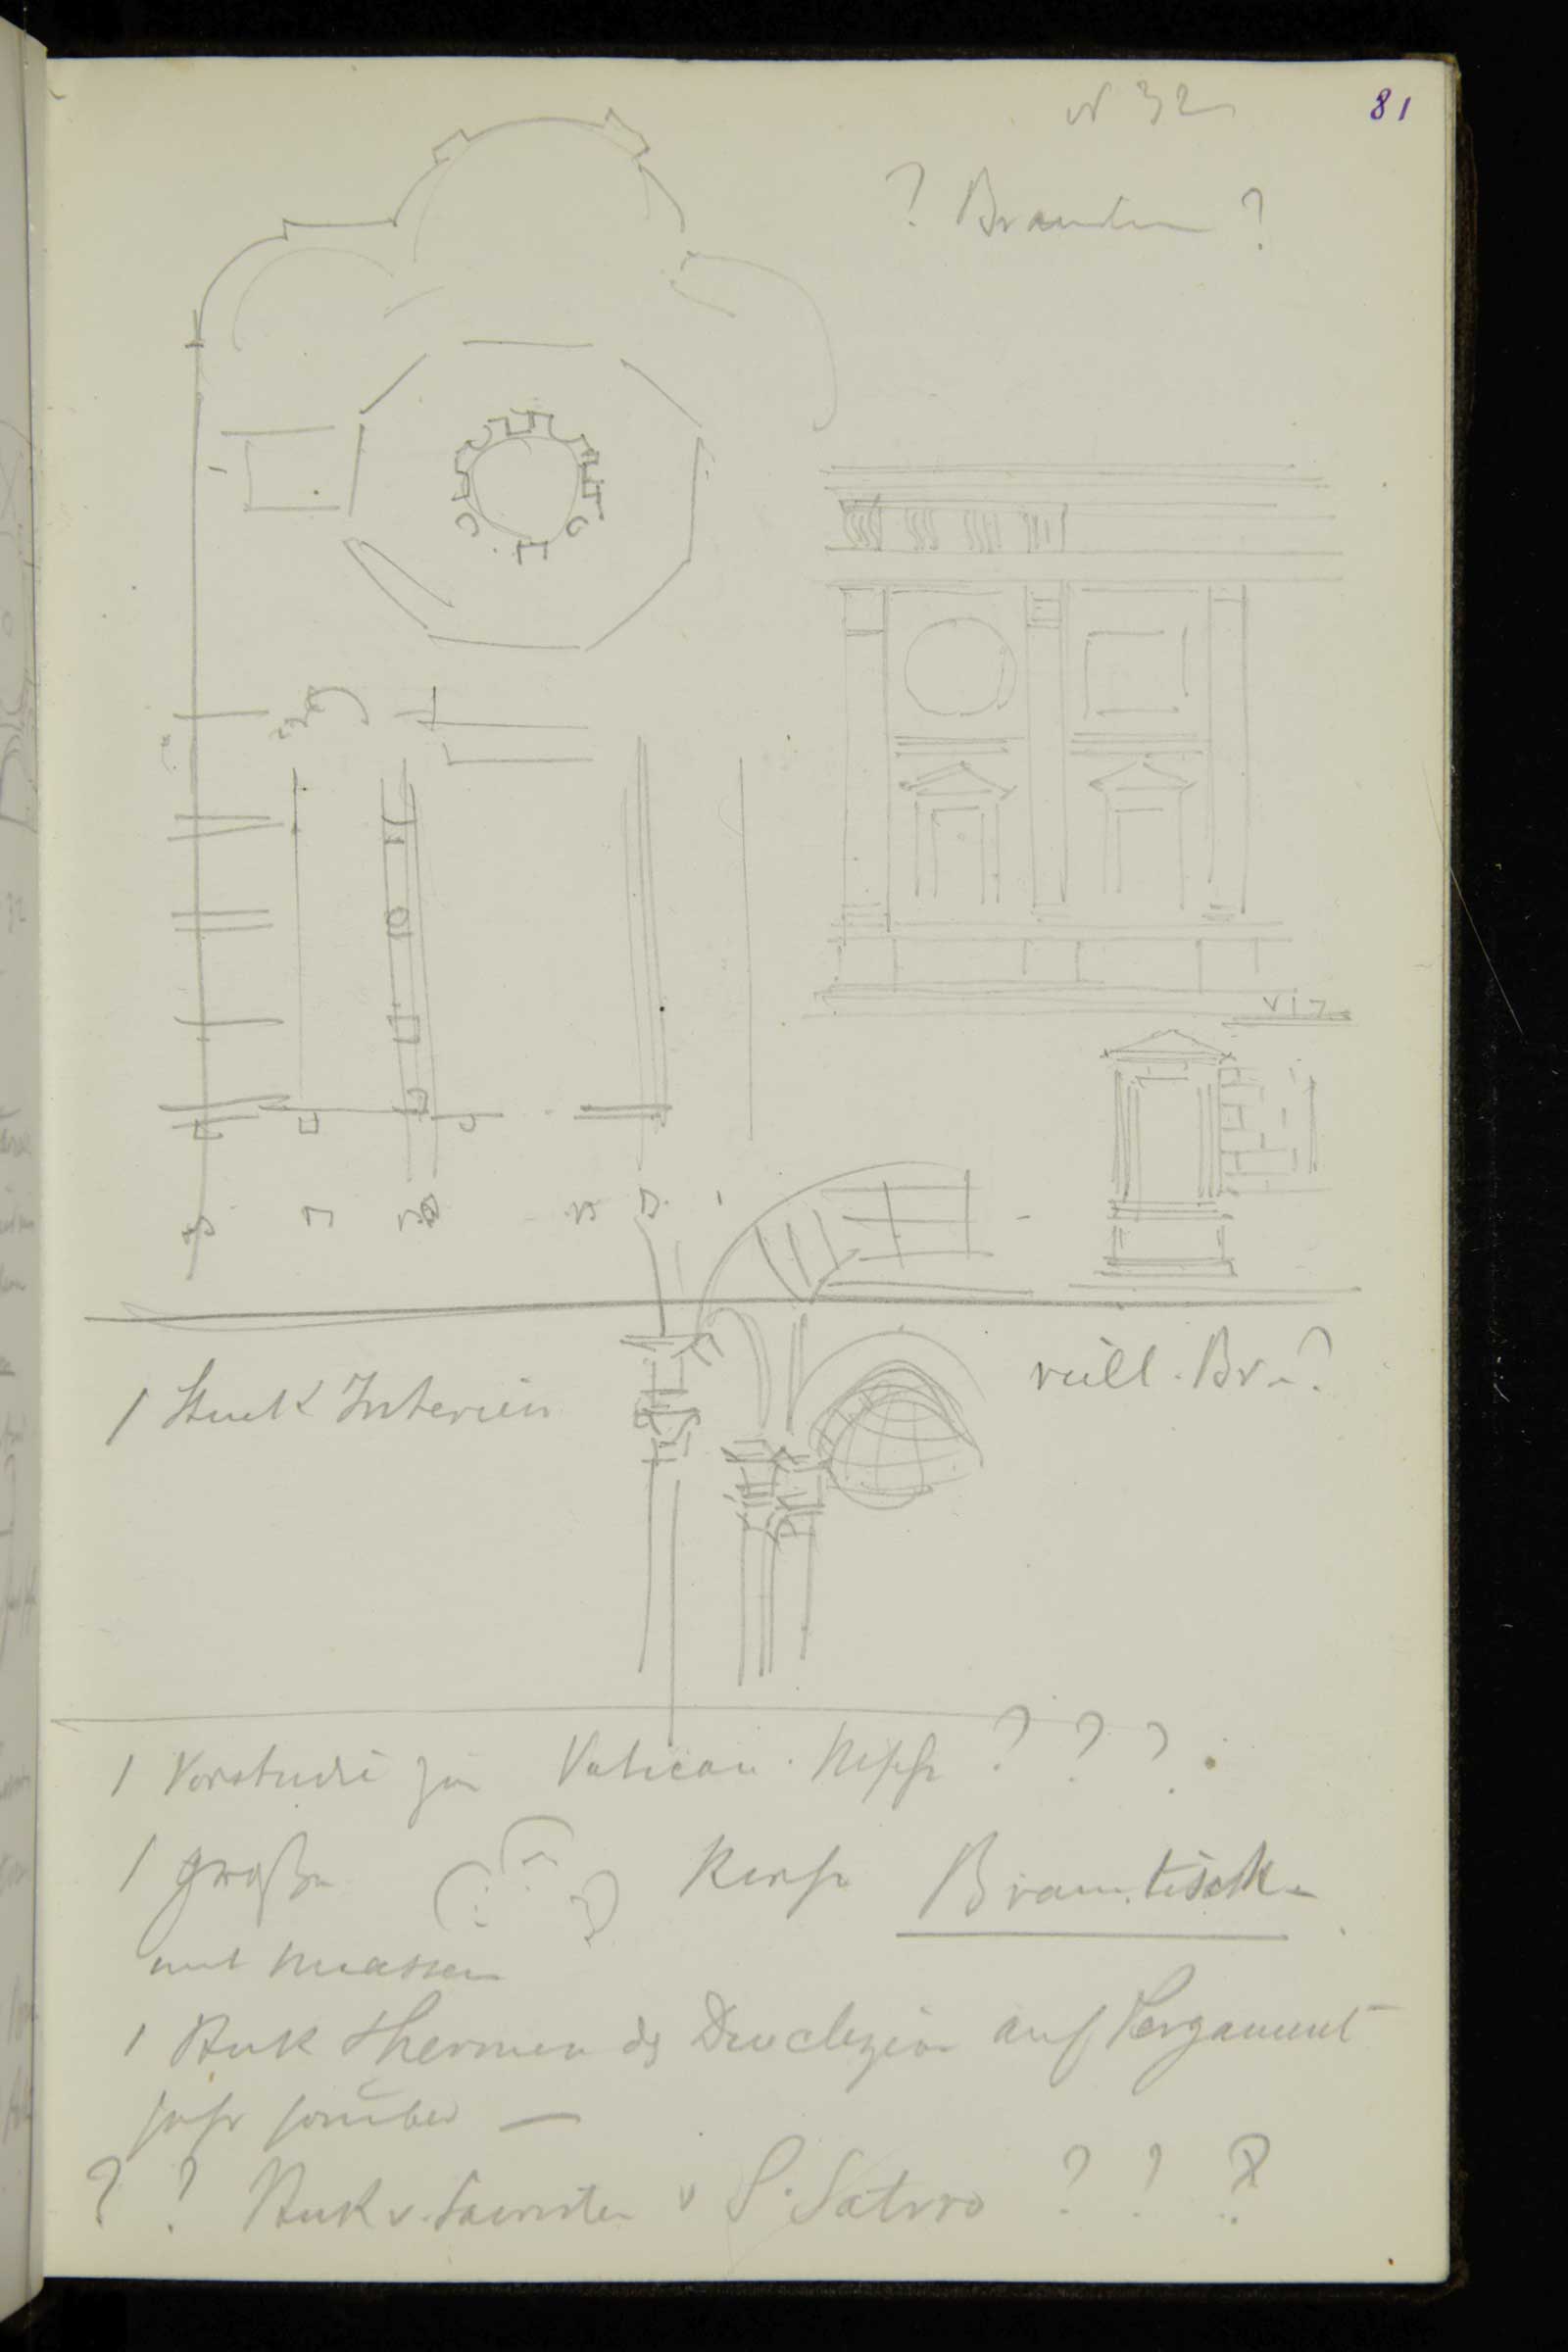 81
N 32
? Braman ?
viz
1 Stück Interieur
viell. Br.?
1 Vorstudie zu Vatican. ? ? ?
1 große Bramantische
mit Maassen
1 Stück Thermen des Diocletian auf Pergament
sehr sauber —
? ? Stück v. Sacristei v S. Satiro ? ? ?